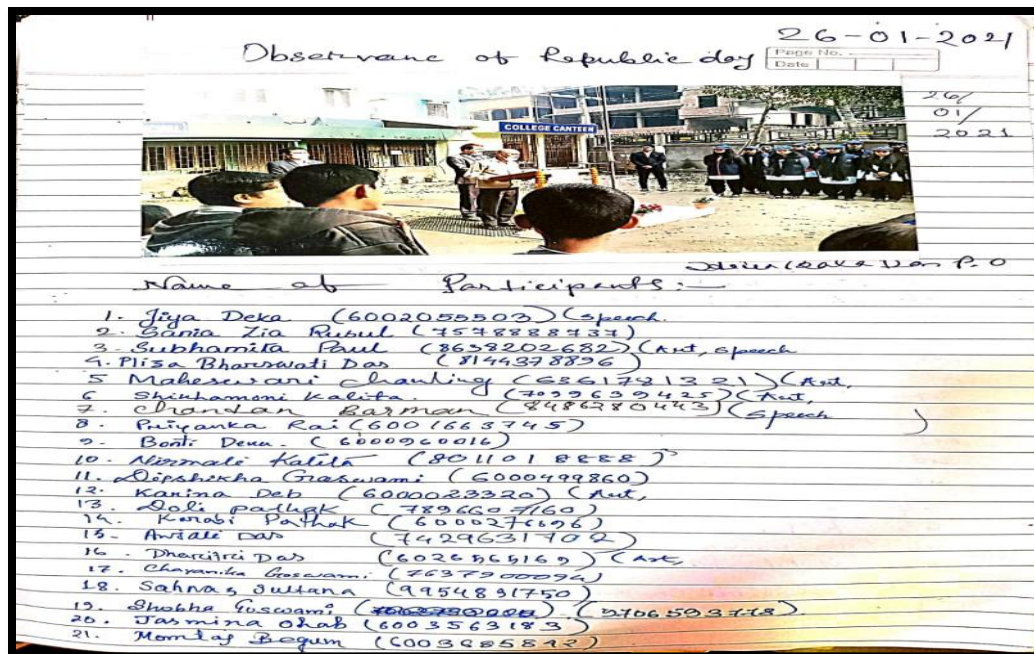 26-01-2021
Observance of Republic day
Page No.
Date
26/
01/
2021
COLLEGE CANTEEN
P.O
Name of Participants:—
1. Jiya Deka (6002055503) (speech.
2. Sania Zia Rusul (7578888737)
3. Subhamita Paul (8638202682) (Art, speech
4. Pliza Bharswati Das (8144378896)
5 Maheswari (6361721321) (Art,
6 Shikhamoni Kalita. (7099639425) (Art,
7. Chandan Barman (8486280443) (speech )
8. Priyanka Rai (6001663745)
9. Bonti Deka. (6000960016)
10. Nirmali Kalita (8011018888)
11. Dipshikha Goswami (6000499860)
12. Karina Deb (6000023320) (Art,
13. Doli pathak (7896607160)
14. Karabi Pathak (6000276696)
15- Das (7429631702)
16. Dharitri Das (6026565169) (Art,
17. Chayanika Goswami (7637900094)
18. Sahnaz Sultana (9954831750)
19. Shobha Goswami (9706593778).
20. Jasmina (6003563183)
21. Momtaj Begum (6003685892)